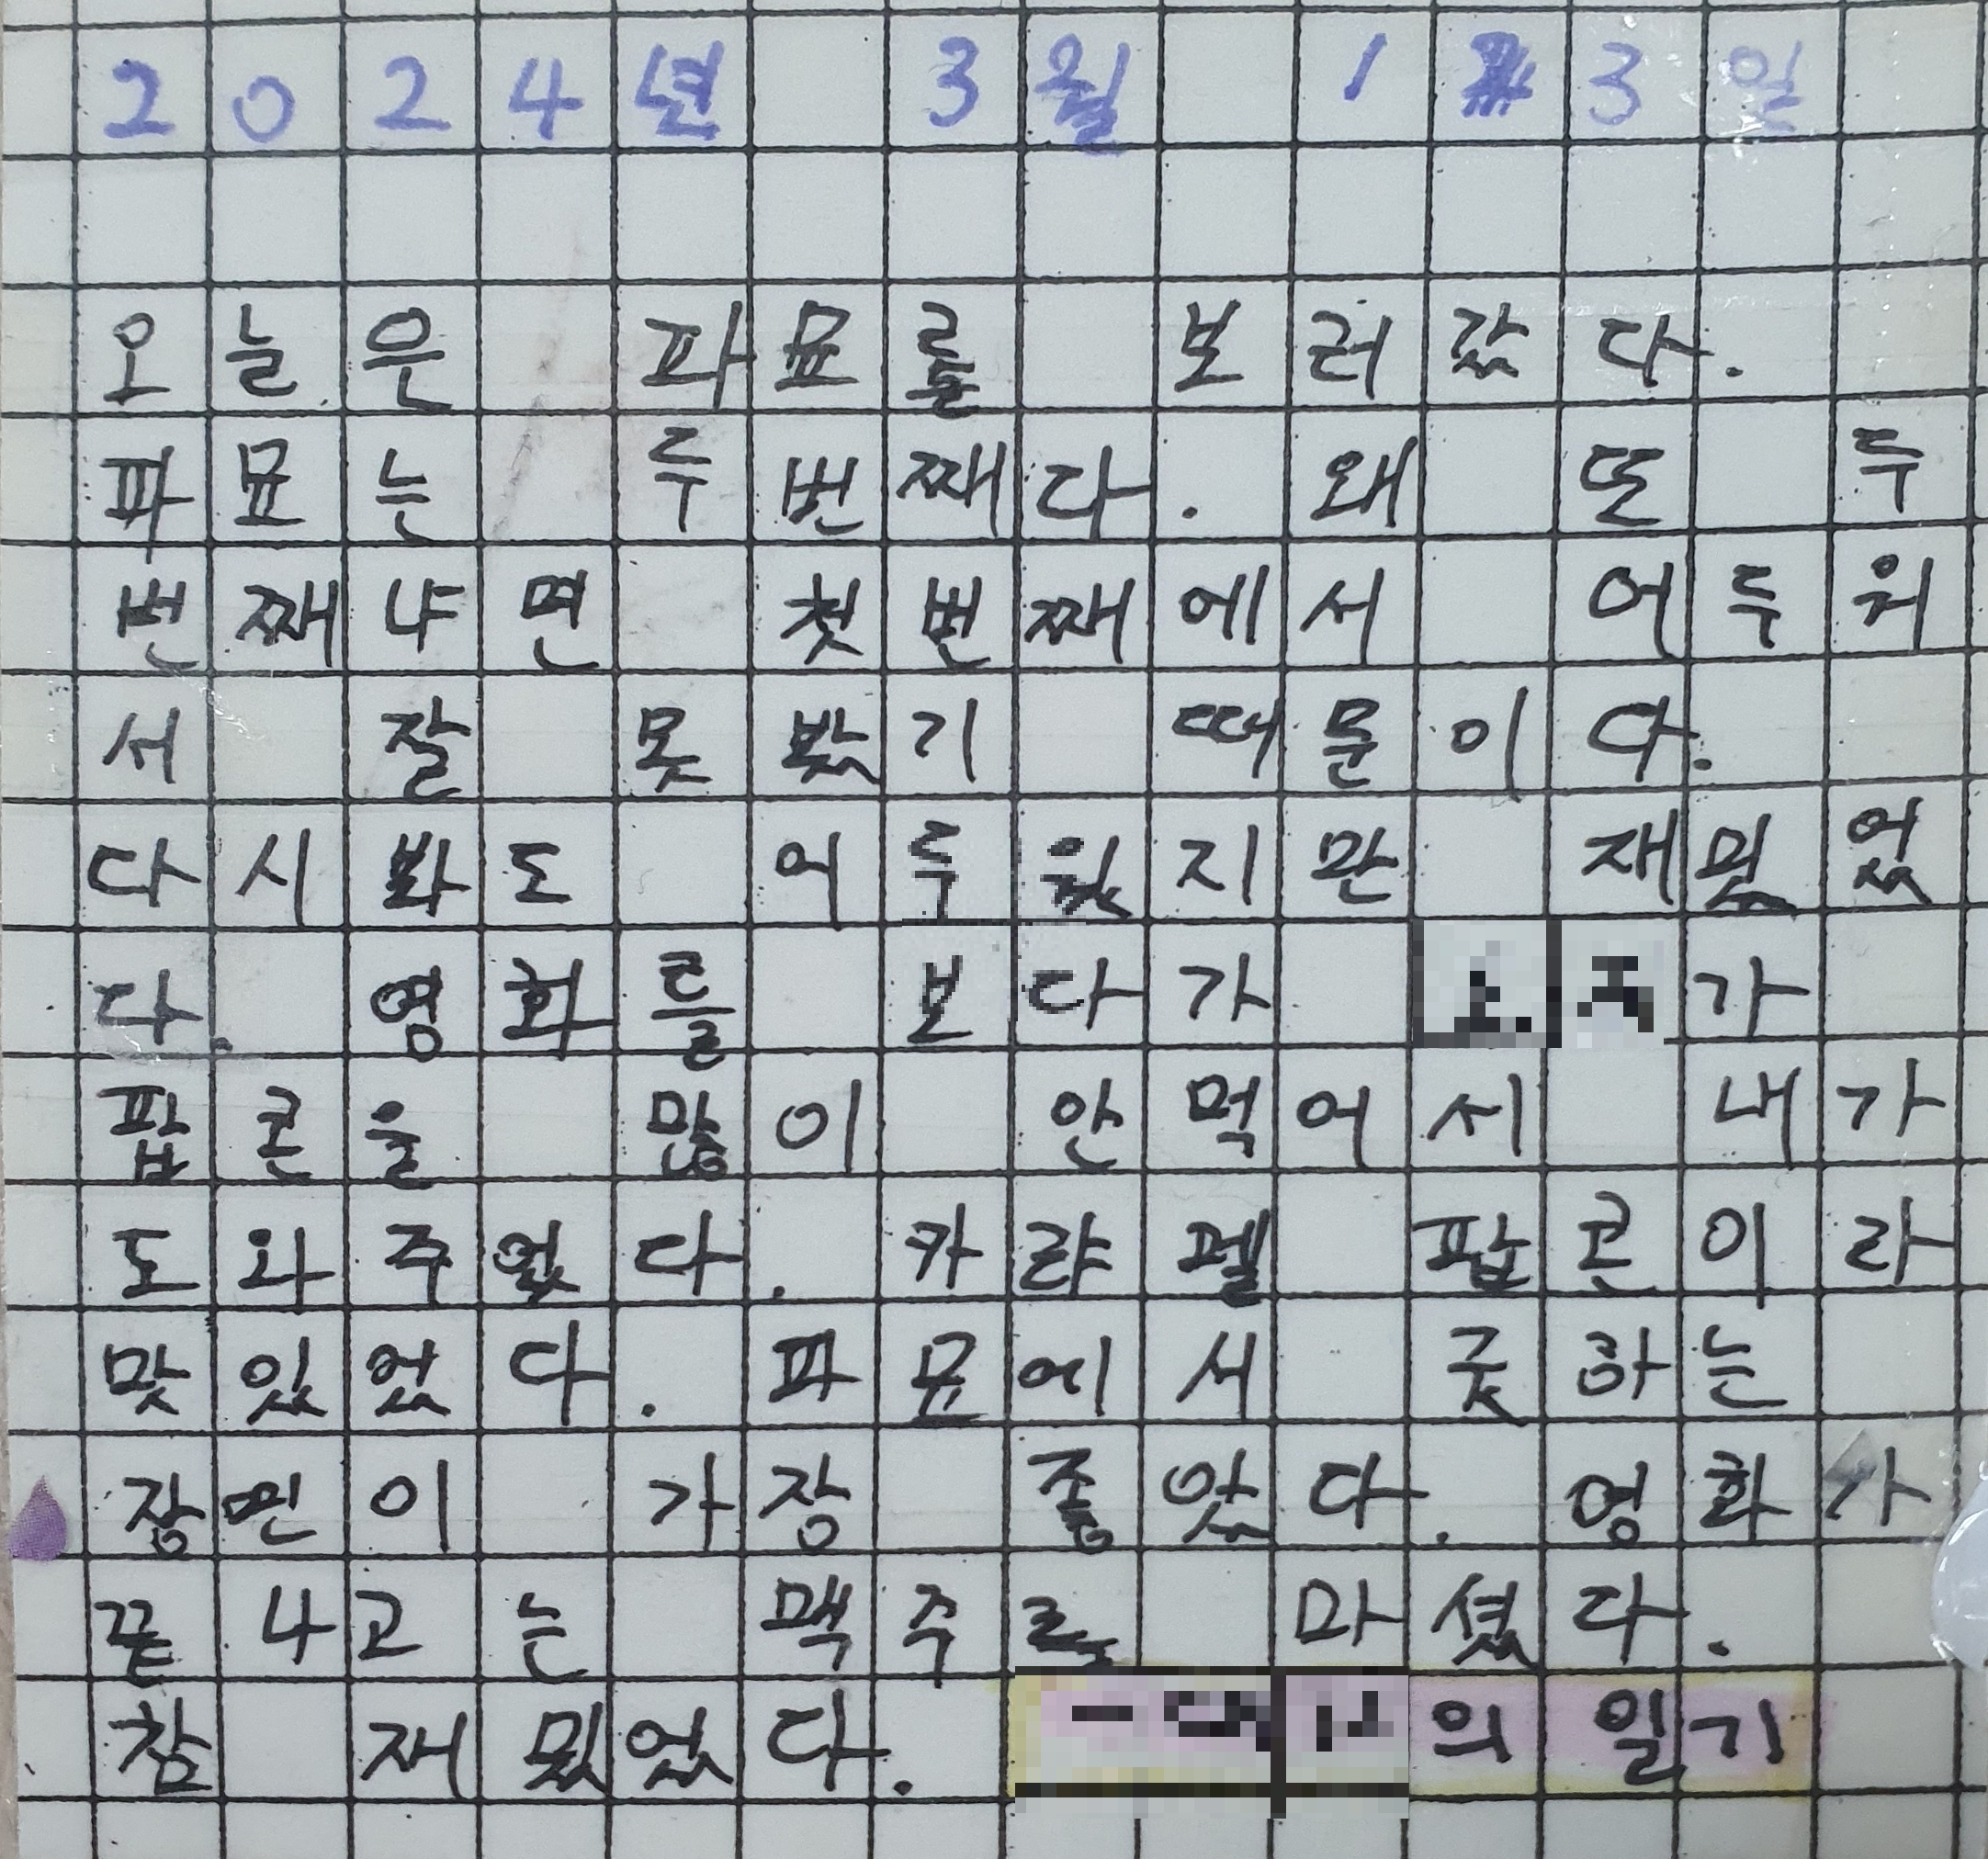 2024년 3월 13일
오늘은 파묘를 보러갔다.
파묘는 두번째다. 왜 또 두
번째냐면 첫번째에서 어두워
서 잘 못봤기 때문이다.
다시봐도 어두웠지만 재밌었
다. 영화를 보다가 가
팝콘을 많이 안먹어서 내가
도와주었다. 카랴멜 팝콘이라
맛있었다. 파묘에서 굿하는
장면이 가장 좋았다. 영화가
끝나고는 맥주를 마셨다.
참 재밌었다. 의 일기